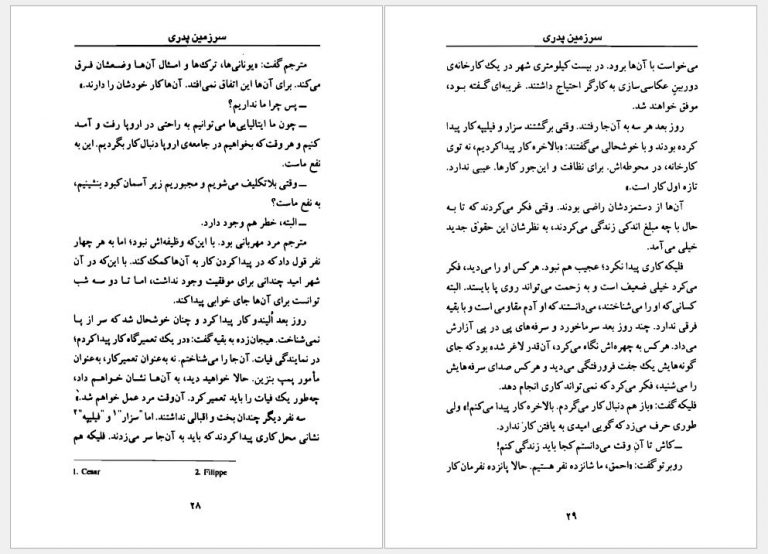 سرزمین پدری
مترجم گفت: «یونانی‌ها، ترک‌ها و امثال آن‌ها وضعشان فرق
می‌کند. برای آن‌ها این اتفاق نمی‌افتد. آن‌ها کار خودشان را دارند.»
ــ پس چرا ما نداریم؟
ــ چون ما ایتالیایی‌ها می‌توانیم به راحتی در اروپا رفت و آمد
کنیم و هر وقت که بخواهیم در جامعه‌ی اروپا دنبال کار بگردیم. این به
نفع ماست.
ــ وقتی بلاتکلیف می‌شویم و مجبوریم زیر آسمان کبود بنشینیم،
به نفع ماست؟
ــ البته، خطر هم وجود دارد.
مترجم مرد مهربانی بود. با این‌که وظیفه‌اش نبود؛ اما به هر چهار
نفر قول داد که در پیدا کردن کار به آن‌ها کمک کند. با این‌که در آن
شهر امید چندانی برای موفقیت وجود نداشت، اما تا دو سه شب
توانست برای آن‌ها جای خوابی پیدا کند.
روز بعد اُلیندو کار پیدا کرد و چنان خوشحال شد که سر از پا
نمی‌شناخت. هیجان‌زده به بقیه گفت: «در یک تعمیرگاه کار پیدا کردم؛
در نمایندگی فیات. آن‌جا را می‌شناختم. نه به‌عنوان تعمیرکار، به‌عنوان
مأمور پمپ بنزین. حالا خواهید دید، به آن‌ها نشان خواهم داد،
چه‌طور یک فیات را باید تعمیر کرد. آن‌وقت مرد عمل خواهم شد.»
سه نفر دیگر چندان بخت و اقبالی نداشتند. اما "سزار"۱ و "فیلیپه"۲
نشانی محل کاری پیدا کردند که باید به آن‌جا سر می‌زدند. فلیکه هم
1. Cesar 2. Filippe
۲۸
سرزمین پدری
می‌خواست با آن‌ها برود. در بیست کیلومتری شهر در یک کارخانه‌ی
دوربین عکاسی‌سازی به کارگر احتیاج داشتند. غریبه‌ای گفته بود،
موفق خواهند شد.
روز بعد هر سه به آن‌جا رفتند. وقتی برگشتند سزار و فیلیپه کار پیدا
کرده بودند و با خوشحالی می‌گفتند: «بالاخره کار پیدا کردیم، نه توی
کارخانه، در محوطه‌اش. برای نظافت و این‌جور کارها. عیبی ندارد.
تازه اول کار است.»
آن‌ها از دستمزدشان راضی بودند. وقتی فکر می‌کردند که تا به
حال با چه مبلغ اندکی زندگی می‌کردند، به نظرشان این حقوق جدید
خیلی می‌آمد.
فلیکه کاری پیدا نکرد؛ عجیب هم نبود. هر کس او را می‌دید، فکر
می‌کرد خیلی ضعیف است و به زحمت می‌تواند روی پا بایستد. البته
کسانی که او را می‌شناختند، می‌دانستند که او آدم مقاومی است و با بقیه
فرقی ندارد. چند روز بعد سرماخورد و سرفه‌های پی در پی آزارش
می‌داد. هر کس به چهره‌اش نگاه می‌کرد، آن‌قدر لاغر شده بود که جای
گونه‌هایش یک جفت فرورفتگی می‌دید و هر کس صدای سرفه‌هایش
را می‌شنید، فکر می‌کرد که نمی‌تواند کاری انجام دهد.
فلیکه گفت: «باز هم دنبال کار می‌گردم. بالاخره کار پیدا می‌کنم!» ولی
طوری حرف می‌زد که گویی امیدی به یافتن کار ندارد.
ــ کاش تا آن وقت می‌دانستم کجا باید زندگی کنم!
روبرتو گفت: «احمق، ما شانزده نفر هستیم. حالا پانزده نفرمان کار
۲۹